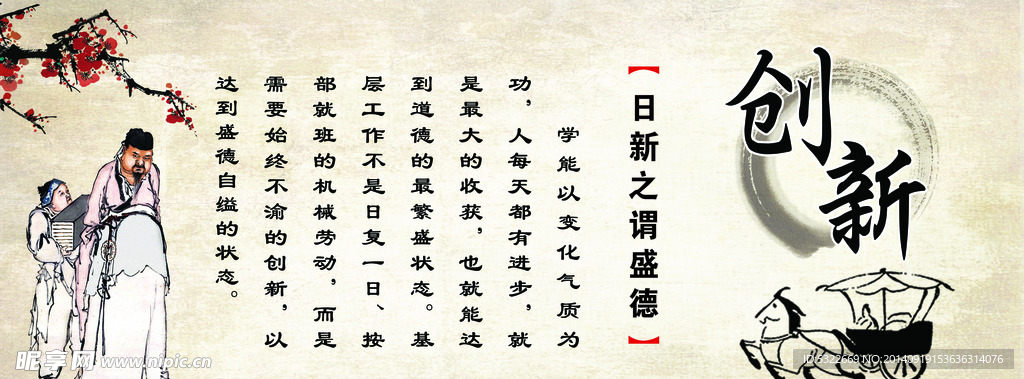 创新
【日新之谓盛德】
学能以变化气质为
功，人每天都有进步，就
是最大的收获，也就能达
到道德的最繁盛状态。基
层工作不是日复一日、按
部就班的机械劳动，而是
需要始终不渝的创新，以
达到盛德自缢的状态。
昵享网 www.nipic.cn
ID:5322669 NO:20140919153636314076